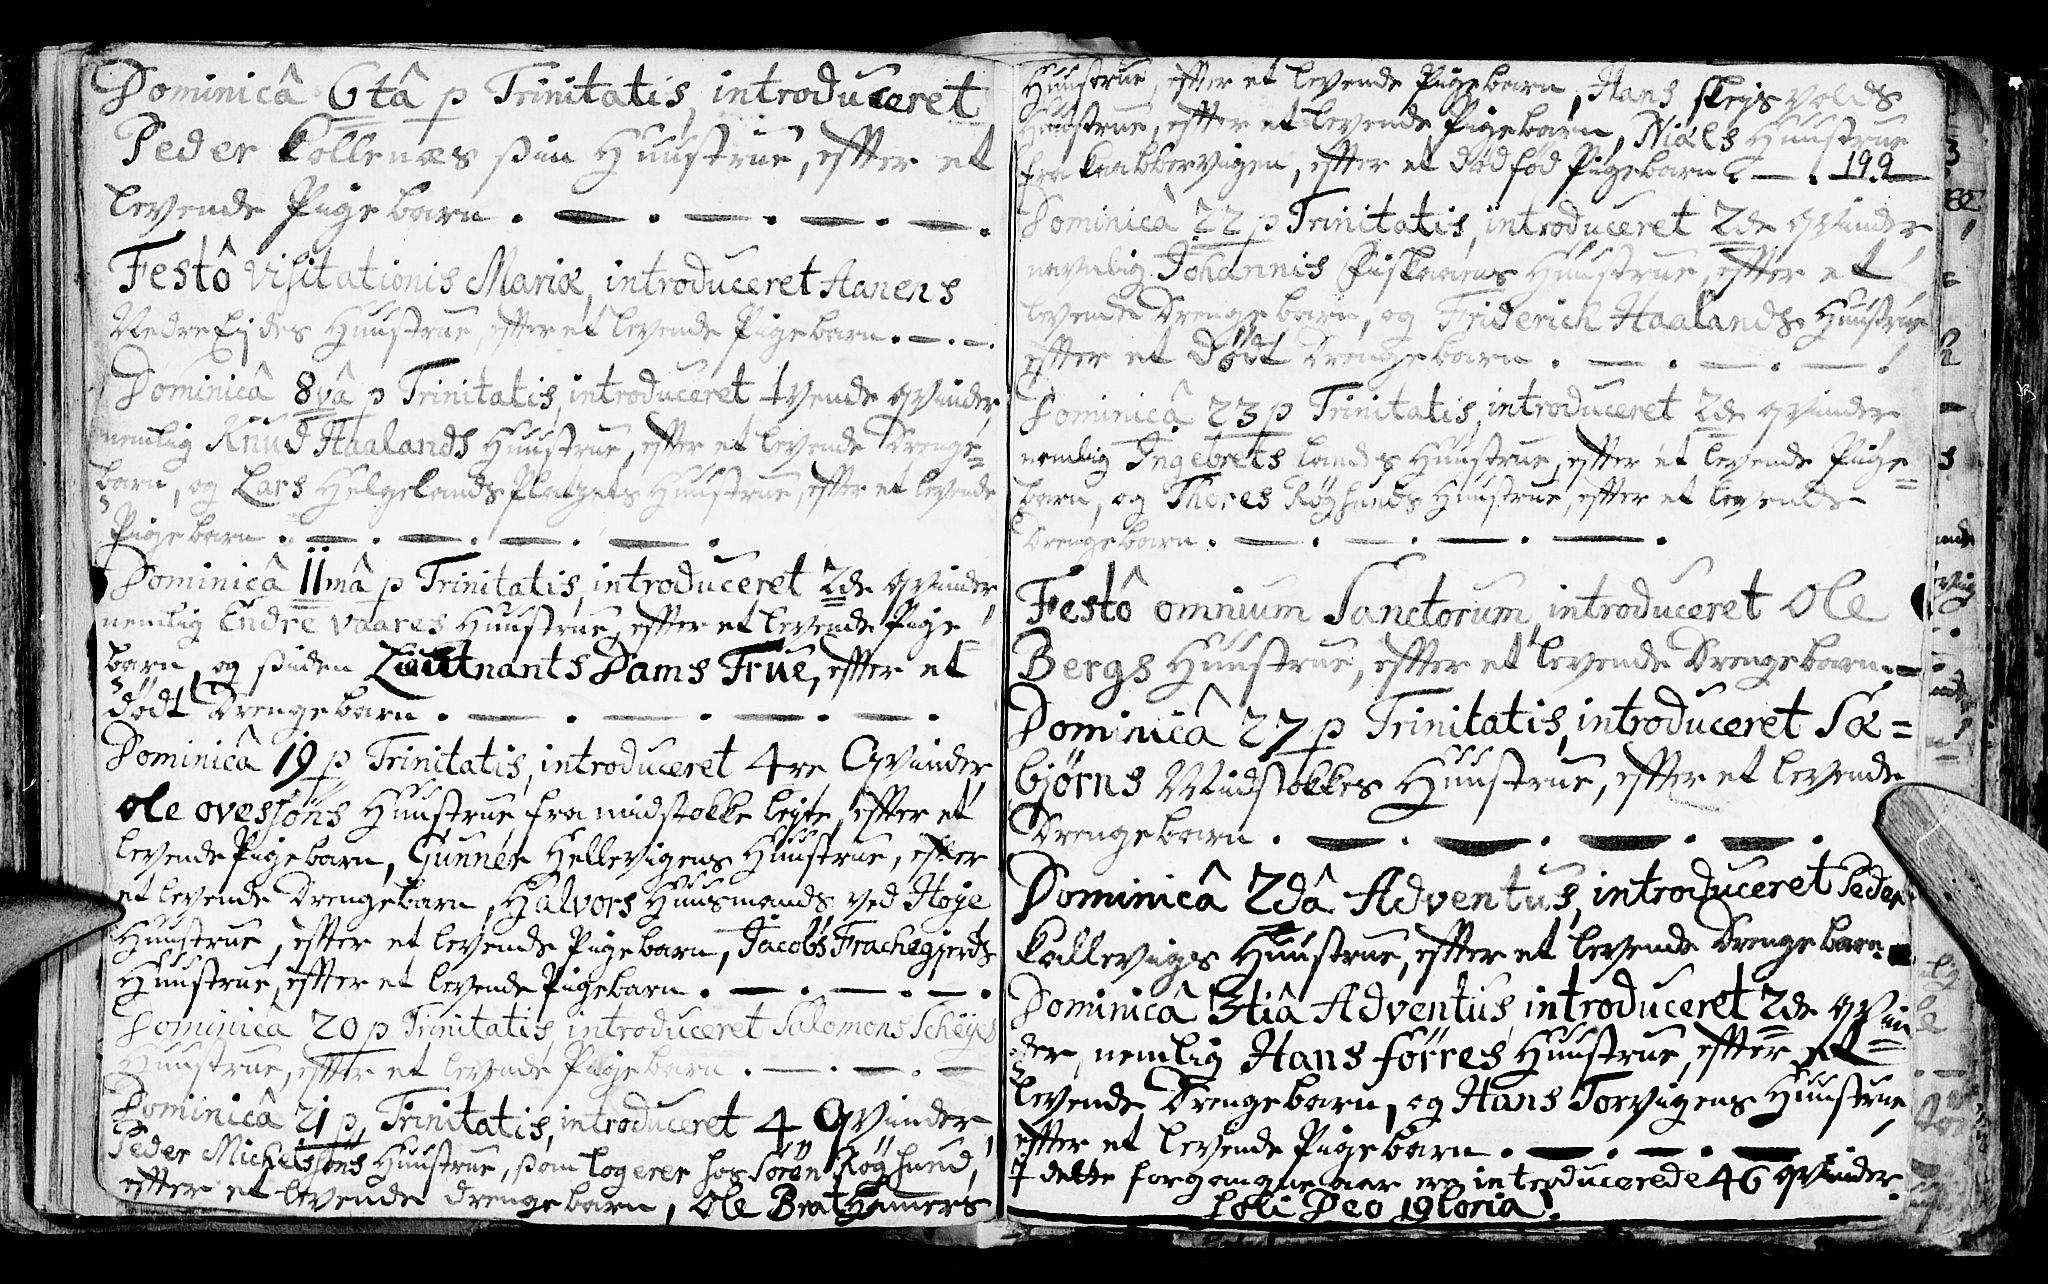 Dominicâ 6tâ p Trinitatis, introduceret
Peder Kollenæs sin Huustrue, effter et
levende Pige barn . — . — . — . — .
Festô Visitationis Mariæ, introduceret Aanens
Nedre Eides Huustrue, effter et levende Pigebarn . — . —
Dominicâ 8vâ p Trinitatis, introduceret tvende qvinder,
nemlig Knud Haalands Huustrue, effter et levende Drenge=
barn, og Lars Helgelands Platzets Huustrue, effter et levende
Pigebarn . — . — . — . — .
Dominicâ 11mâ p Trinitatis, introduceret 2de qvinder,
nemlig Endre Vaares Huustrue, effter et levende Pige=
barn, og siden Lieutnants Dams Frue, effter et
dødt Drengebarn . — . — . — . — .
Dominicâ 19 p Trinitatis, introduceret 4re Qvinder,
Ole Ovessøns Huustrue fra midstokke lejte, effter et
levende Pigebarn, Gunner Hellevigens Huustrue, efter
et levende Drengebarn, Halvors Huusmands ved Høje
Huustrue, effter et levende Pigebarn, Jacobs Frachegjerds
Huustrue, effter et levende Pigebarn . — . — . — .
Dominica 20 p Trinitatis, introduceret Salomons Scheyes
Huustrue, effter et levende Pigebarn . — . — . —
Dominicâ 21 p, Trinitatis, introduceret 4 Qvinder,
Peder Michelssøns Huustrue, som logerer hos Søren Røghund,
effter et levende drengebarn, Ole Brat Hamers
Huustrue, effter et levende Pigebarn, Hans Skejsvolds
Huustrue, effter et levende Pigebarn, Niæls Huustrue
fra Kaabbervigen, effter et dødfød Pigebarn . — . 199
Dominicâ 22 p Trinitatis, introduceret 2de qvinder,
nemlig Johannis Fiskaaens Huustrue, effter et
levende Drengebarn, og Friderich Haalands Huustrue
effter et dødt Drengebarn . — . — . — . — .
Dominicâ 23 p Trinitatis, introduceret 2de qvinder,
nemlig Ingebrets Landes Huustrue, effter et levende Pige=
barn, og Thores Røghunds Huustrue, effter et levende
Drengebarn . — . — . — . — .
Festô omnium Sanctorum, introduceret Ole
Bergs Huustrue, effter et levende Drengebarn . —
Dominicâ 27 p Trinitatis, introduceret Sæ=
bjørns Midstokkes Huustrue, effter et levende
Drengebarn . — . — . — . — .
Dominicâ 2dâ Adventus, introduceret Peder
Kallevigs Huustrue, effter et levende Drengebarn .
Dominicâ 3tiâ Adventus introduceret 2de qvin=
der, nemlig Hans Førres Huustrue, effter et
levende Drengebarn, og Hans Torvigens Huustrue,
effter et levende Pigebarn . — . — . — .
I dette forgangne aar ere introducerede 46 qvinder.
Soli Deo Gloria.